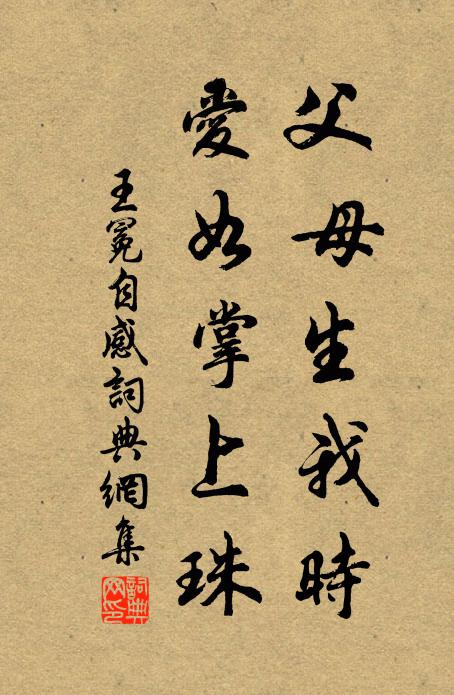 父母生我時
愛如掌上珠
王冕自感詞典網集
詞典
網印